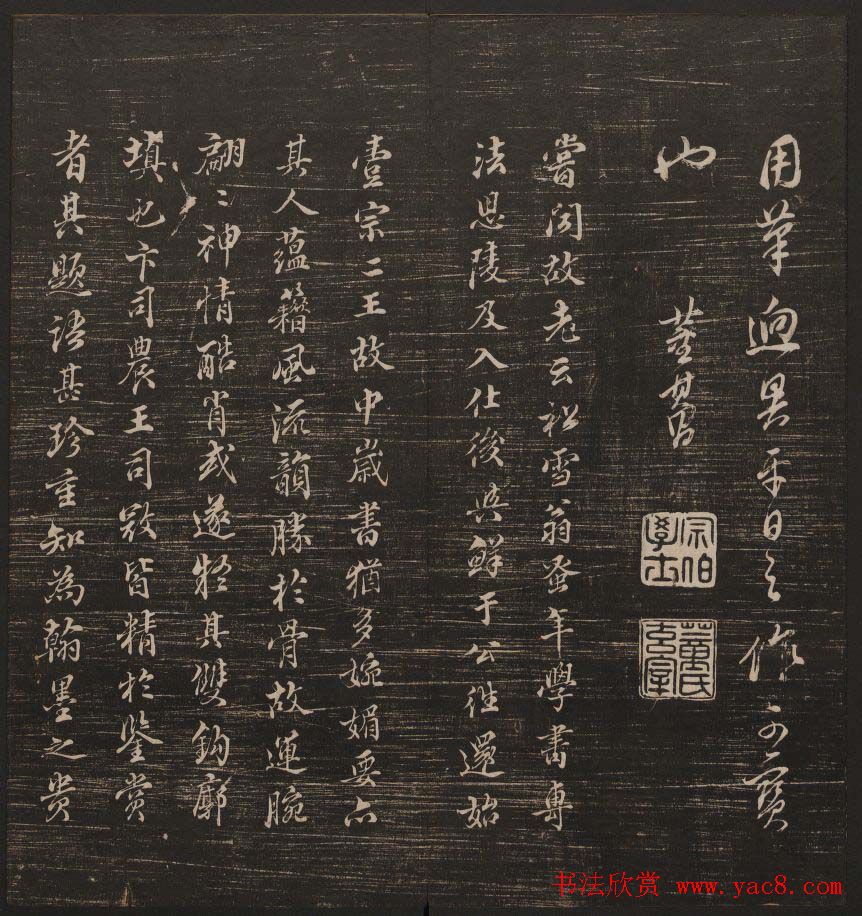 用筆迥異平日之作可寶
也 董其昌
宗伯學士
董氏玄宰
嘗聞故老云松雪翁蚤年學書專
法思陵及入仕後與鮮于公往還始
壹宗二王故中歲書猶多婉媚要亦
其人蘊籍風流韻勝於骨故運腕
翩〻神情酷肖或遂疑其雙鉤廓
填也卞司農王司寇皆精於鑒賞
者其題語甚珍重知為翰墨之貴
书法欣赏 www.yac8.com